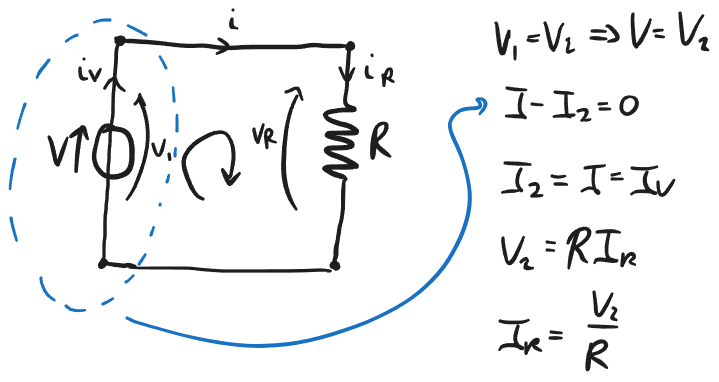 i
i_V
i_R
V
V_1
V_R
R
V_1 = V_2 => V = V_2
I - I_2 = 0
I_2 = I = I_V
V_2 = R I_R
I_R = V_2 / R